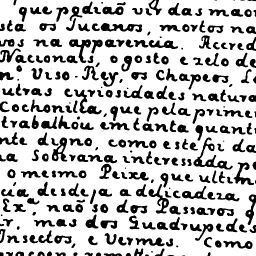 que podiaõ vir das maon
sta os Tucanos, mortos na
vos na apparencia. Accred
Nacionais, o gosto e zelo de
n.º Viso-Rey, os Chapeos, L
utras curiosidades natura
Cochonilla, que pela primei
trabalhou em tanta quanti
nte digno, como este foi da
na Soberana interessada pe
o mesmo Peixe, que ultim
cia desdeja a delicadeza q
Exª, naõ so dos Passaros q
ir, mas dos Quadrupedes
Insectos, e Vermes. Como